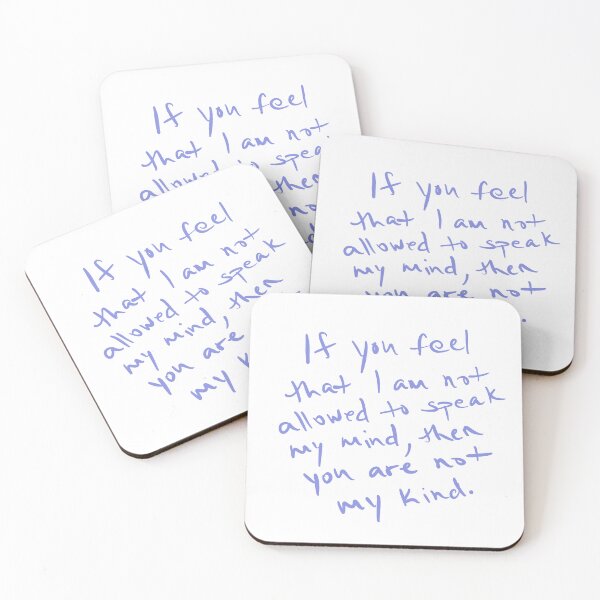 If you feel
that I am not
allowed to spea
then
no
If you feel
that I am not
allowed to speak
my mind, then
you are not
If you feel
that I am not
allowed to speak
my mind, then
you are
my k
If you feel
that I am not
allowed to speak
my mind, then
you are not
my kind.